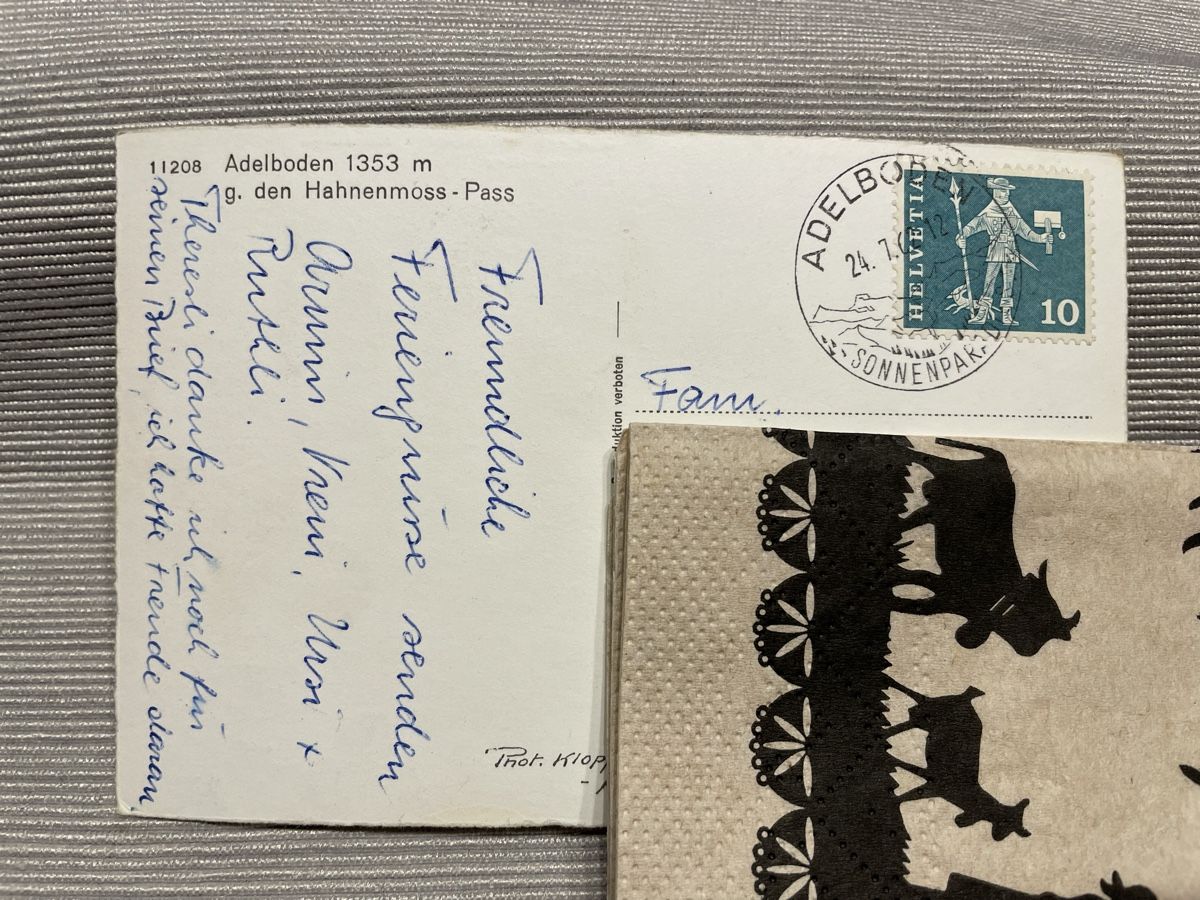 11208 Adelboden 1353 m
g. den Hahnenmoss-Pass
Freundliche
Feriengrüsse senden
Armin, Vreni, Ursi +
Ruthli.
Theresli danke ich noch für
seinen Brief, ich hatte Freude daran
uktion verboten
Phot. Klop
ADELBODEN
24. 7. 12
SONNENPAR
HELVETIA
10
Fam.